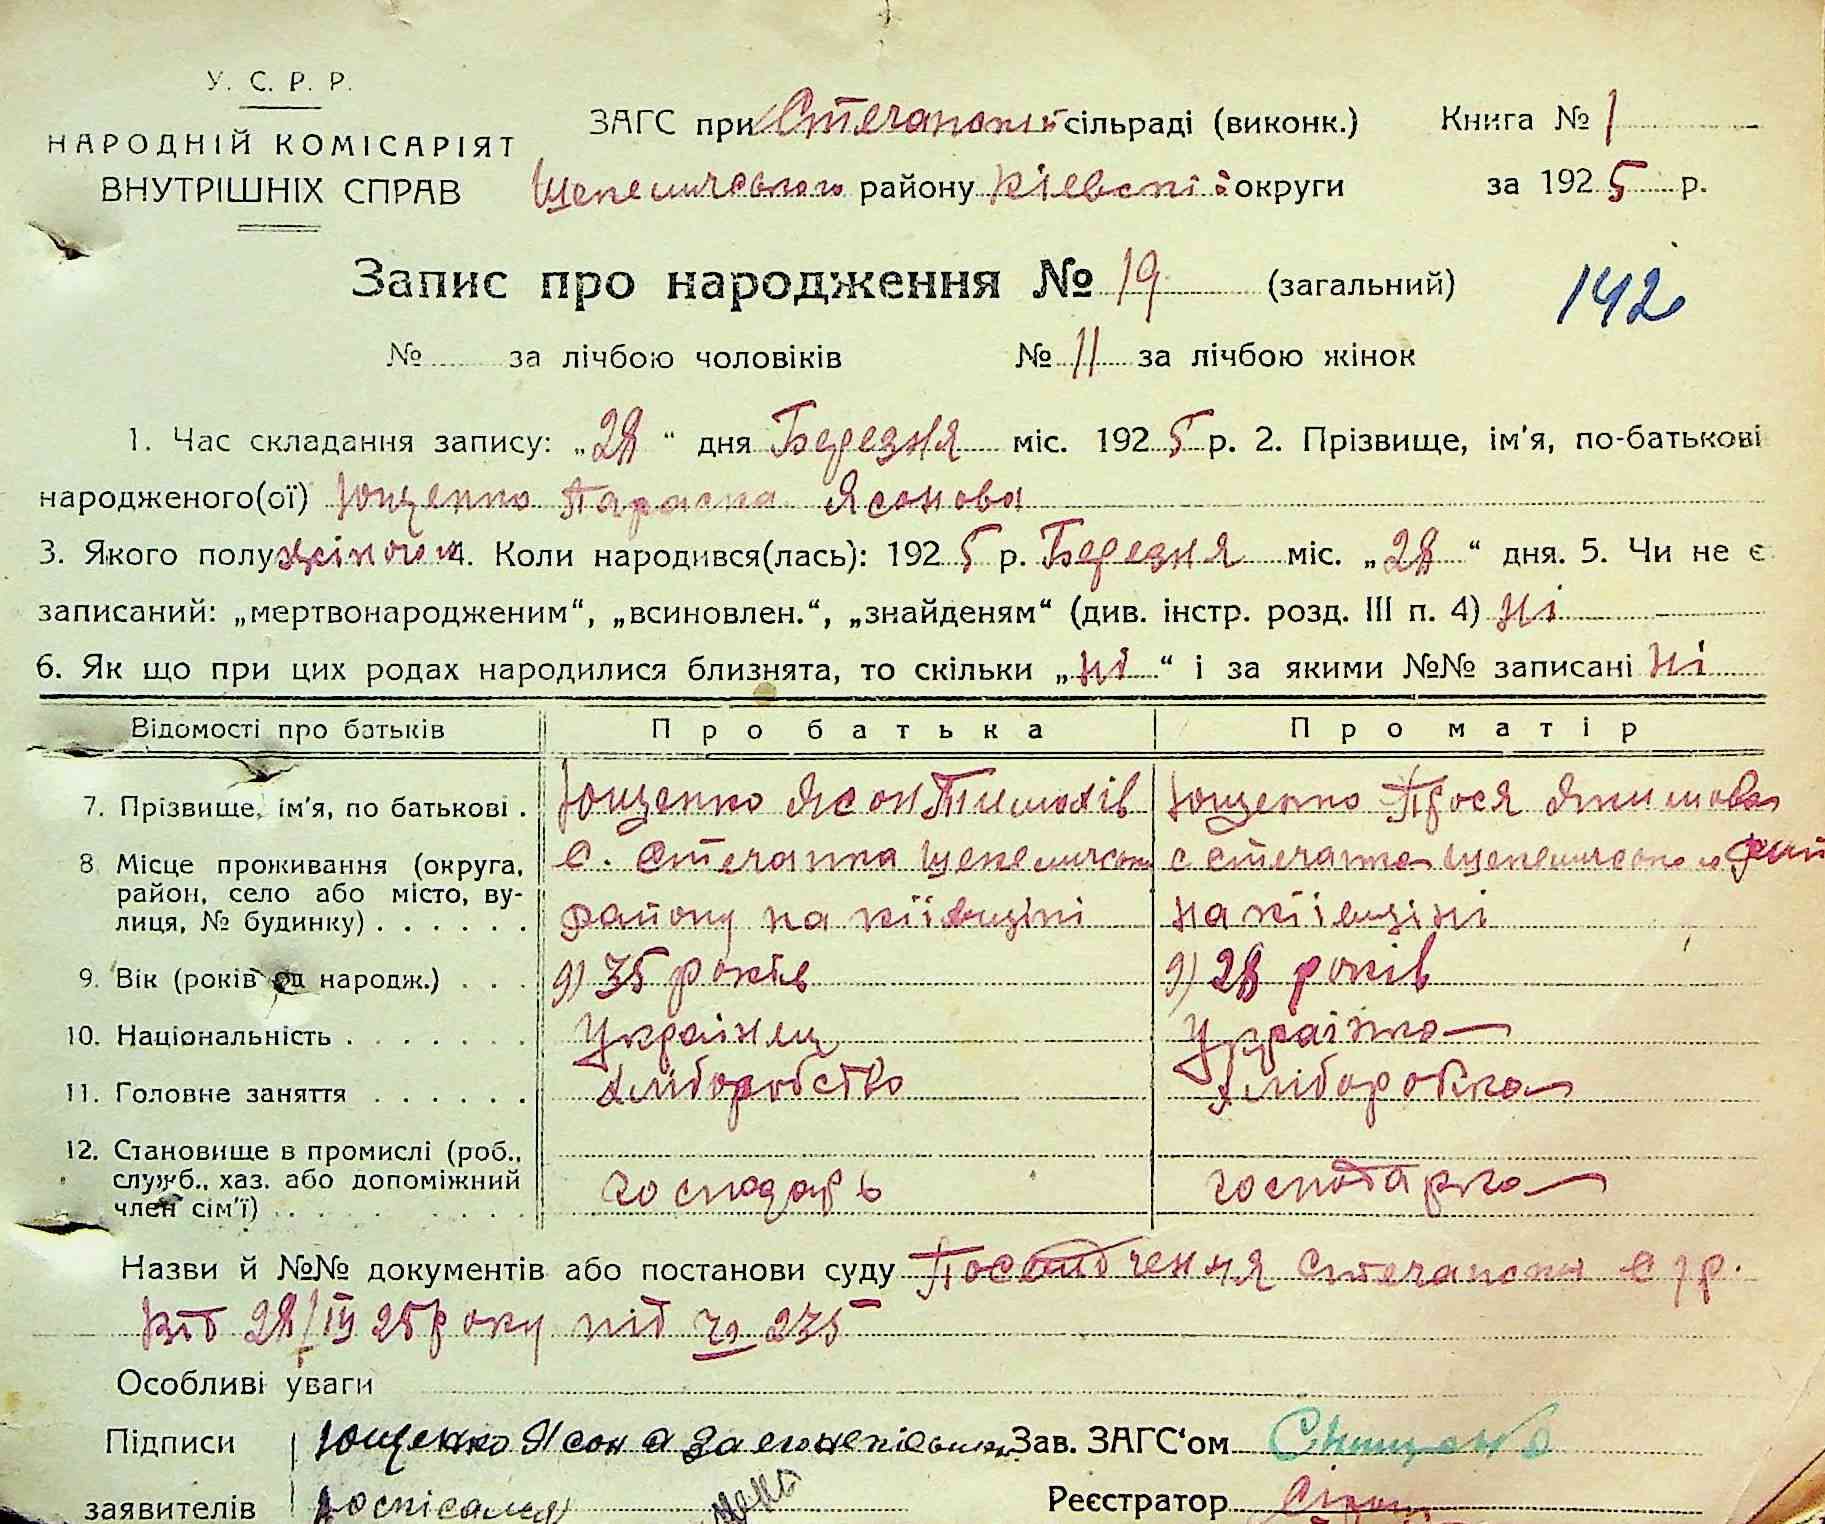 У. С. Р. Р.
НАРОДНІЙ КОМІСАРІЯТ
ВНУТРІШНІХ СПРАВ
ЗАГС при Стечанскій сільраді (виконк.)
Щепеличського району Кіевскій округи
Книга № 1
за 1925 р.
Запис про народження № 19 (загальний)
142
№ за лічбою чоловіків № 11 за лічбою жінок
1. Час складання запису: „28“ дня Березня міс. 1925 р. 2. Прізвище, ім'я, по-батькові
народженого(ої) Ющенко Параска Ясонова
3. Якого полу жіночого 4. Коли народився(лась): 1925 р. Березня міс. „28“ дня. 5. Чи не є
записаний: „мертвонародженим“, „всиновлен.“, „знайденям“ (див. інстр. розд. III п. 4) ні
6. Як що при цих родах народилися близнята, то скільки „ні“ і за якими №№ записані ні
Відомості про батьків Про батька Про матір
7. Прізвище, ім'я, по батькові . Ющенко Ясон Тимохів Ющенко Прося Якимова
8. Місце проживання (округа, район, село або місто, вулиця, № будинку) . . . . . . с. Стечанка Щепеличськ с Стечанка Щепеличського рай
району на київщіні на київщіні
9. Вік (років од народж.) . . . 9) 35 років 9) 28 років
10. Національність . . . . . . . Українец Українка
11. Головне заняття . . . . . . Хліборобство Хліборобка
12. Становище в промислі (роб., служб., хаз. або допоміжний член сім'ї) . . . . . . . . господарь господарка
Назви й №№ документів або постанови суду Посвідчення Стечанскій с/р.
від 28/III 25 року під № 235
Особливі уваги
Підписи Ющенко Ясон а за его Зав. ЗАГС'ом
заявителів Реєстратор